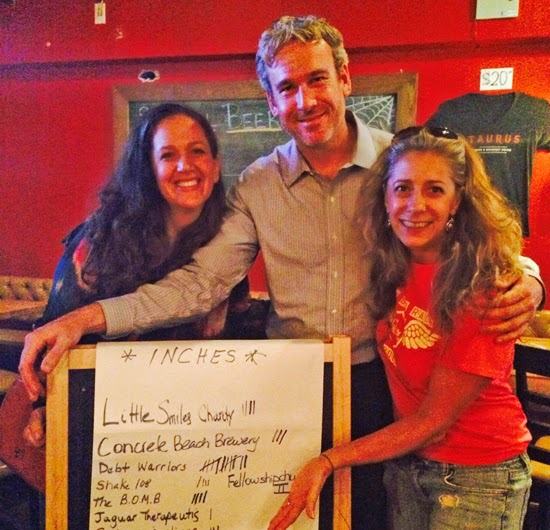 BEER
$20
TAURUS
* INCHES *
Little Smiles Charity ||||
Concrete Beach Brewery |||
Debt Warriors
Shake 108 |||
Fellowship
The B.O.M.B ||||
Jaguar Therapeutis |